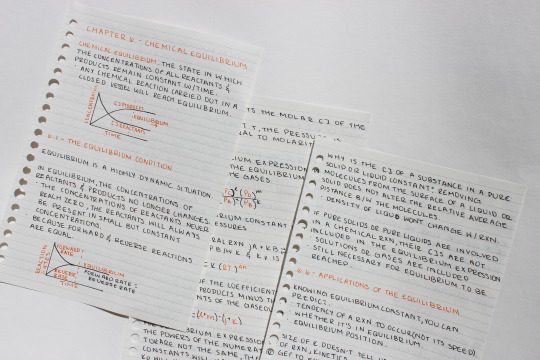 CHAPTER 6 - CHEMICAL EQUILIBRIUM
CHEMICAL EQUILIBRIUM: THE STATE IN WHICH
THE CONCENTRATIONS OF ALL REACTANTS &
PRODUCTS REMAIN CONSTANT W/TIME.
· ANY CHEMICAL REACTION CARRIED OUT IN A
CLOSED VESSEL WILL REACH EQUILIBRIUM.
CONCENTRATION
[PRODUCTS]
EQUILIBRIUM
[REACTANTS]
TIME
6.1 - THE EQUILIBRIUM CONDITION
EQUILIBRIUM IS A HIGHLY DYNAMIC SITUATION.
IN EQUILIBRIUM, THE CONCENTRATIONS OF
REACTANTS & PRODUCTS NO LONGER CHANGES.
· THE CONCENTRATIONS OF REACTANTS NEVER
REACH ZERO, THE REACTANTS WILL ALWAYS
BE PRESENT IN SMALL BUT CONSTANT
CONCENTRATIONS.
· BECAUSE FORWARD & REVERSE REACTIONS
ARE EQUAL.
FORWARD
RATE
REVERSE
RATE
EQUILIBRIUM
FORWARD RATE =
REVERSE RATE
TIME
IS THE MOLAR [] OF THE
T, THE PRESSURE IS
AL TO MOLARITY
IUM EXPRESSION
THE EQUILIBRIUM
E GASES
RIUM CONSTANT
ESSURES
RAL RXN jA + kB
OF THE COEFFICIENT
PRODUCTS MINUS TH
NTS OF THE GASEOU
(l+m)-(j+k)
RIUM EXPRESSION
THE POWERS OF THE NUMERA
TOR ARE NOT THE SAME, TH
CONSTANTS WILL
WHY IS THE [] OF A SUBSTANCE IN A PURE
SOLID OR LIQUID CONSTANT? REMOVING
MOLECULES FROM THE SURFACE OF A LIQUID OR
SOLID DOES NOT ALTER THE RELATIVE AVERAGE
DISTANCE B/W THE MOLECULES.
· DENSITY OF LIQUID WON'T CHANGE W/ RXN.
IF PURE SOLIDS OR PURE LIQUIDS ARE INVOLVED
IN A CHEMICAL RXN, THEIR []S ARE NOT
INCLUDED IN THE EQUILIBRIUM EXPRESSION
· SOLUTIONS OR GASES ARE INCLUDED
STILL NECESSARY FOR EQUILIBRIUM TO BE
REACHED.
6.6 - APPLICATIONS OF THE EQUILIBRIUM
KNOWING EQUILIBRIUM CONSTANT, YOU CAN
PREDICT:
· TENDENCY OF A RXN TO OCCUR (NOT ITS SPEED)
· WHETHER IT'S IN EQUILIBRIUM.
· EQUILIBRIUM POSITION.
SIZE OF K DOESN'T TELL
OF RXN, KINETICS